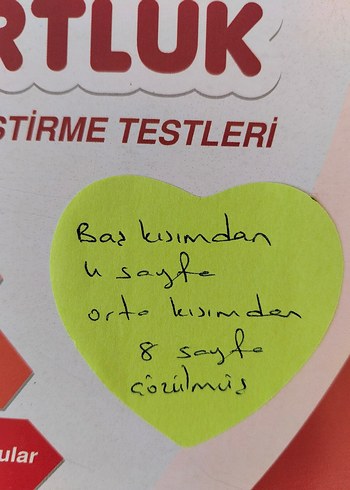 RTLUK
ŞTİRME TESTLERİ
Baş kısımdan
4 sayfa
orta kısımdan
8 sayfa
çözülmüş
ular